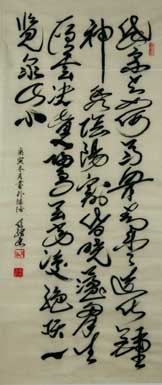 岱宗夫如何齊魯青未了造化鍾
神秀陰陽割昏曉盪胸生
層雲決眥入歸鳥會當凌絕頂一
覽眾山小
庚寅冬月書於